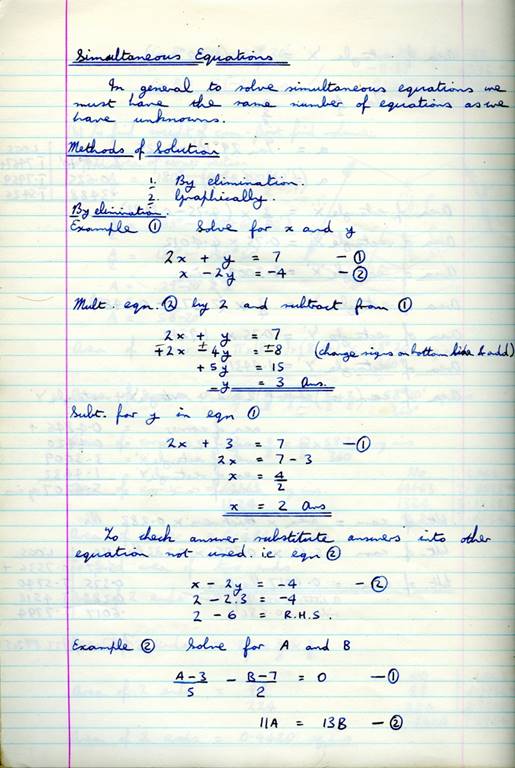 Simultaneous Equations
In general to solve simultaneous equations we
must have the same number of equations as we
have unknowns.
Methods of Solution
1. By elimination.
2. Graphically.
By elimination.
Example ① Solve for x and y
2x + y = 7 — ①
x - 2y = -4 — ②
Mult. eqn. ② by 2 and subtract from ①
2x + y = 7
∓2x ± 4y = ±8 (change signs on bottom line & add)
+ 5y = 15
y = 3 Ans.
Subt. for y in eqn ①
2x + 3 = 7 — ①
2x = 7 - 3
x = 4/2
x = 2 Ans
To check answer substitute answers into other
equation not used. i.e eqn ②
x - 2y = -4 — ②
2 - 2.3 = -4
2 - 6 = R.H.S.
Example ② Solve for A and B
A-3/5 - B-7/2 = 0 — ①
11A = 13B — ②